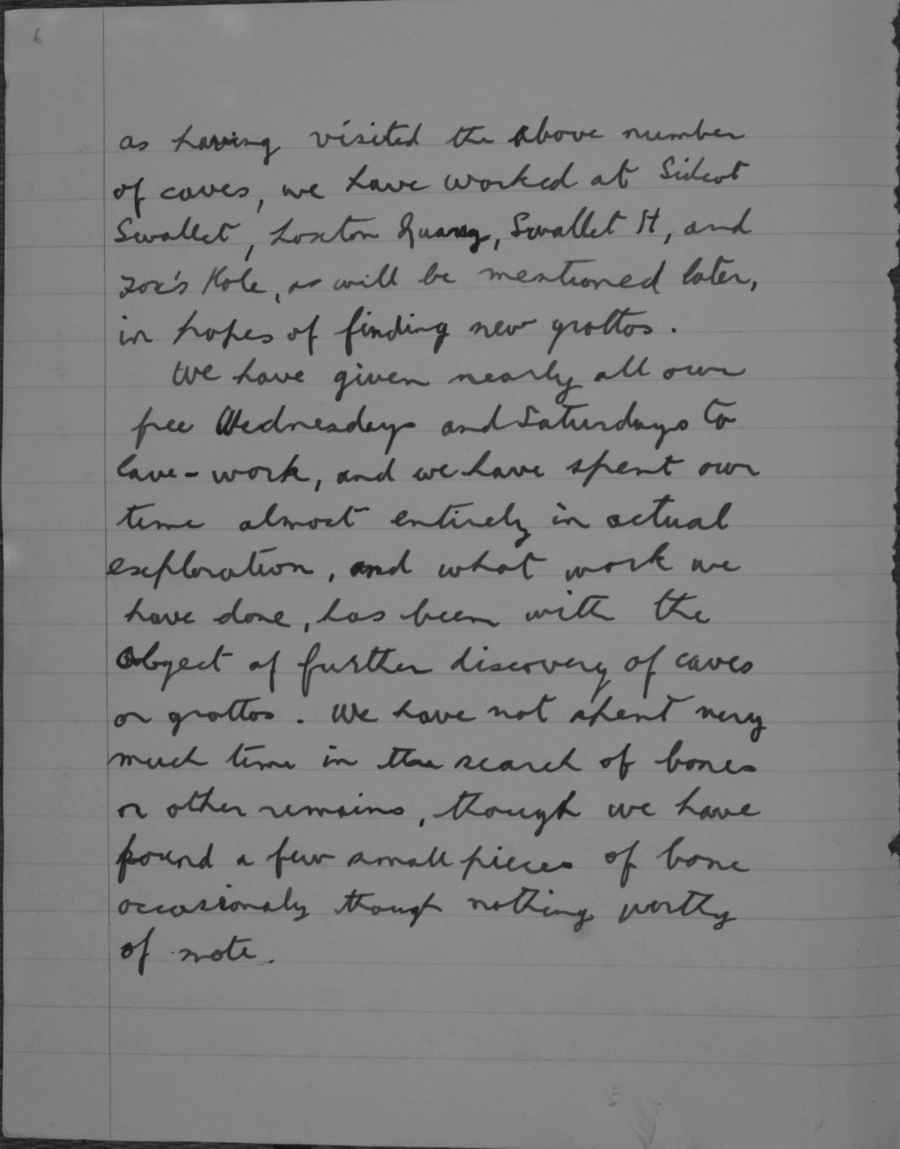 6
as having visited the above number
of caves, we have worked at Sidcot
Swallet, Loxton Quarry, Swallet H, and
Fox's Hole, as will be mentioned later,
in hopes of finding new grottos.
We have given nearly all our
free Wednesdays and Saturdays to
Cave-work, and we have spent our
time almost entirely in actual
exploration, and what work we
have done, has been with the
Object of further discovery of caves
or grottos. We have not spent very
much time in the search of bones
or other remains, though we have
found a few small pieces of bone
occasionaly though nothing worthy
of note.